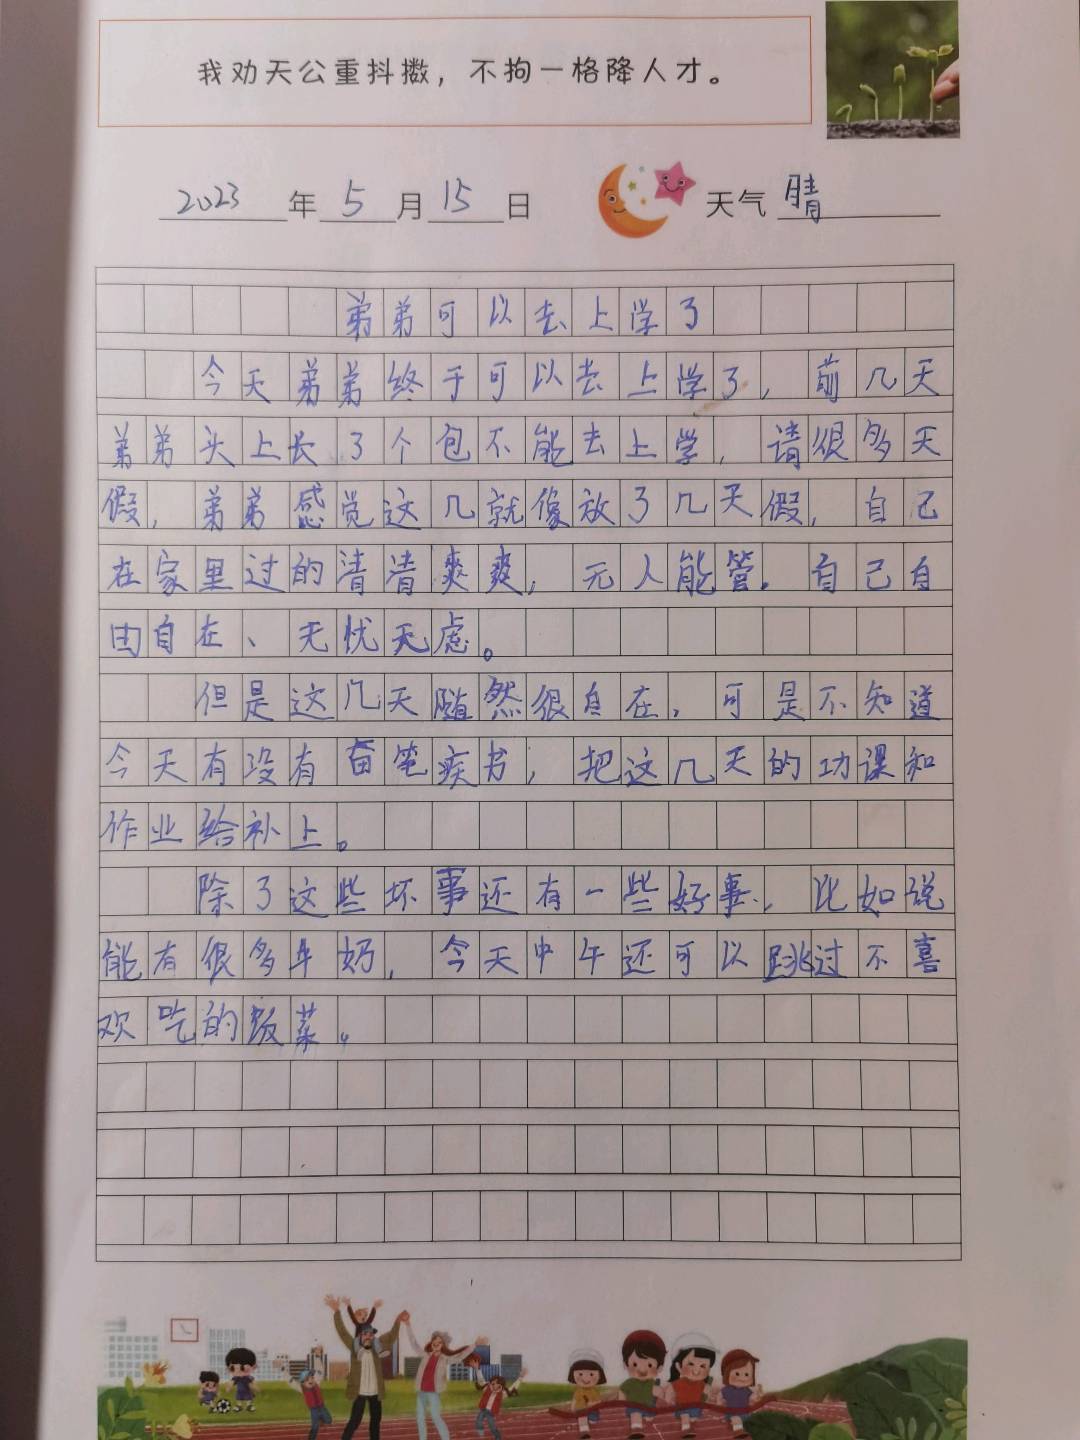 我劝天公重抖擞，不拘一格降人才。
2023年5月15日 天气 晴
弟弟可以去上学了
今天弟弟终于可以去上学了，前几天
弟弟头上长了个包不能去上学，请很多天
假，弟弟感觉这几就像放了几天假，自己
在家里过的清清爽爽，无人能管。自己自
由自在、无忧无虑。
但是这几天随然很自在，可是不知道
今天有没有奋笔疾书，把这几天的功课和
作业给补上。
除了这些坏事还有一些好事，比如说
能有很多牛奶，今天中午还可以跳过不喜
欢吃的饭菜。